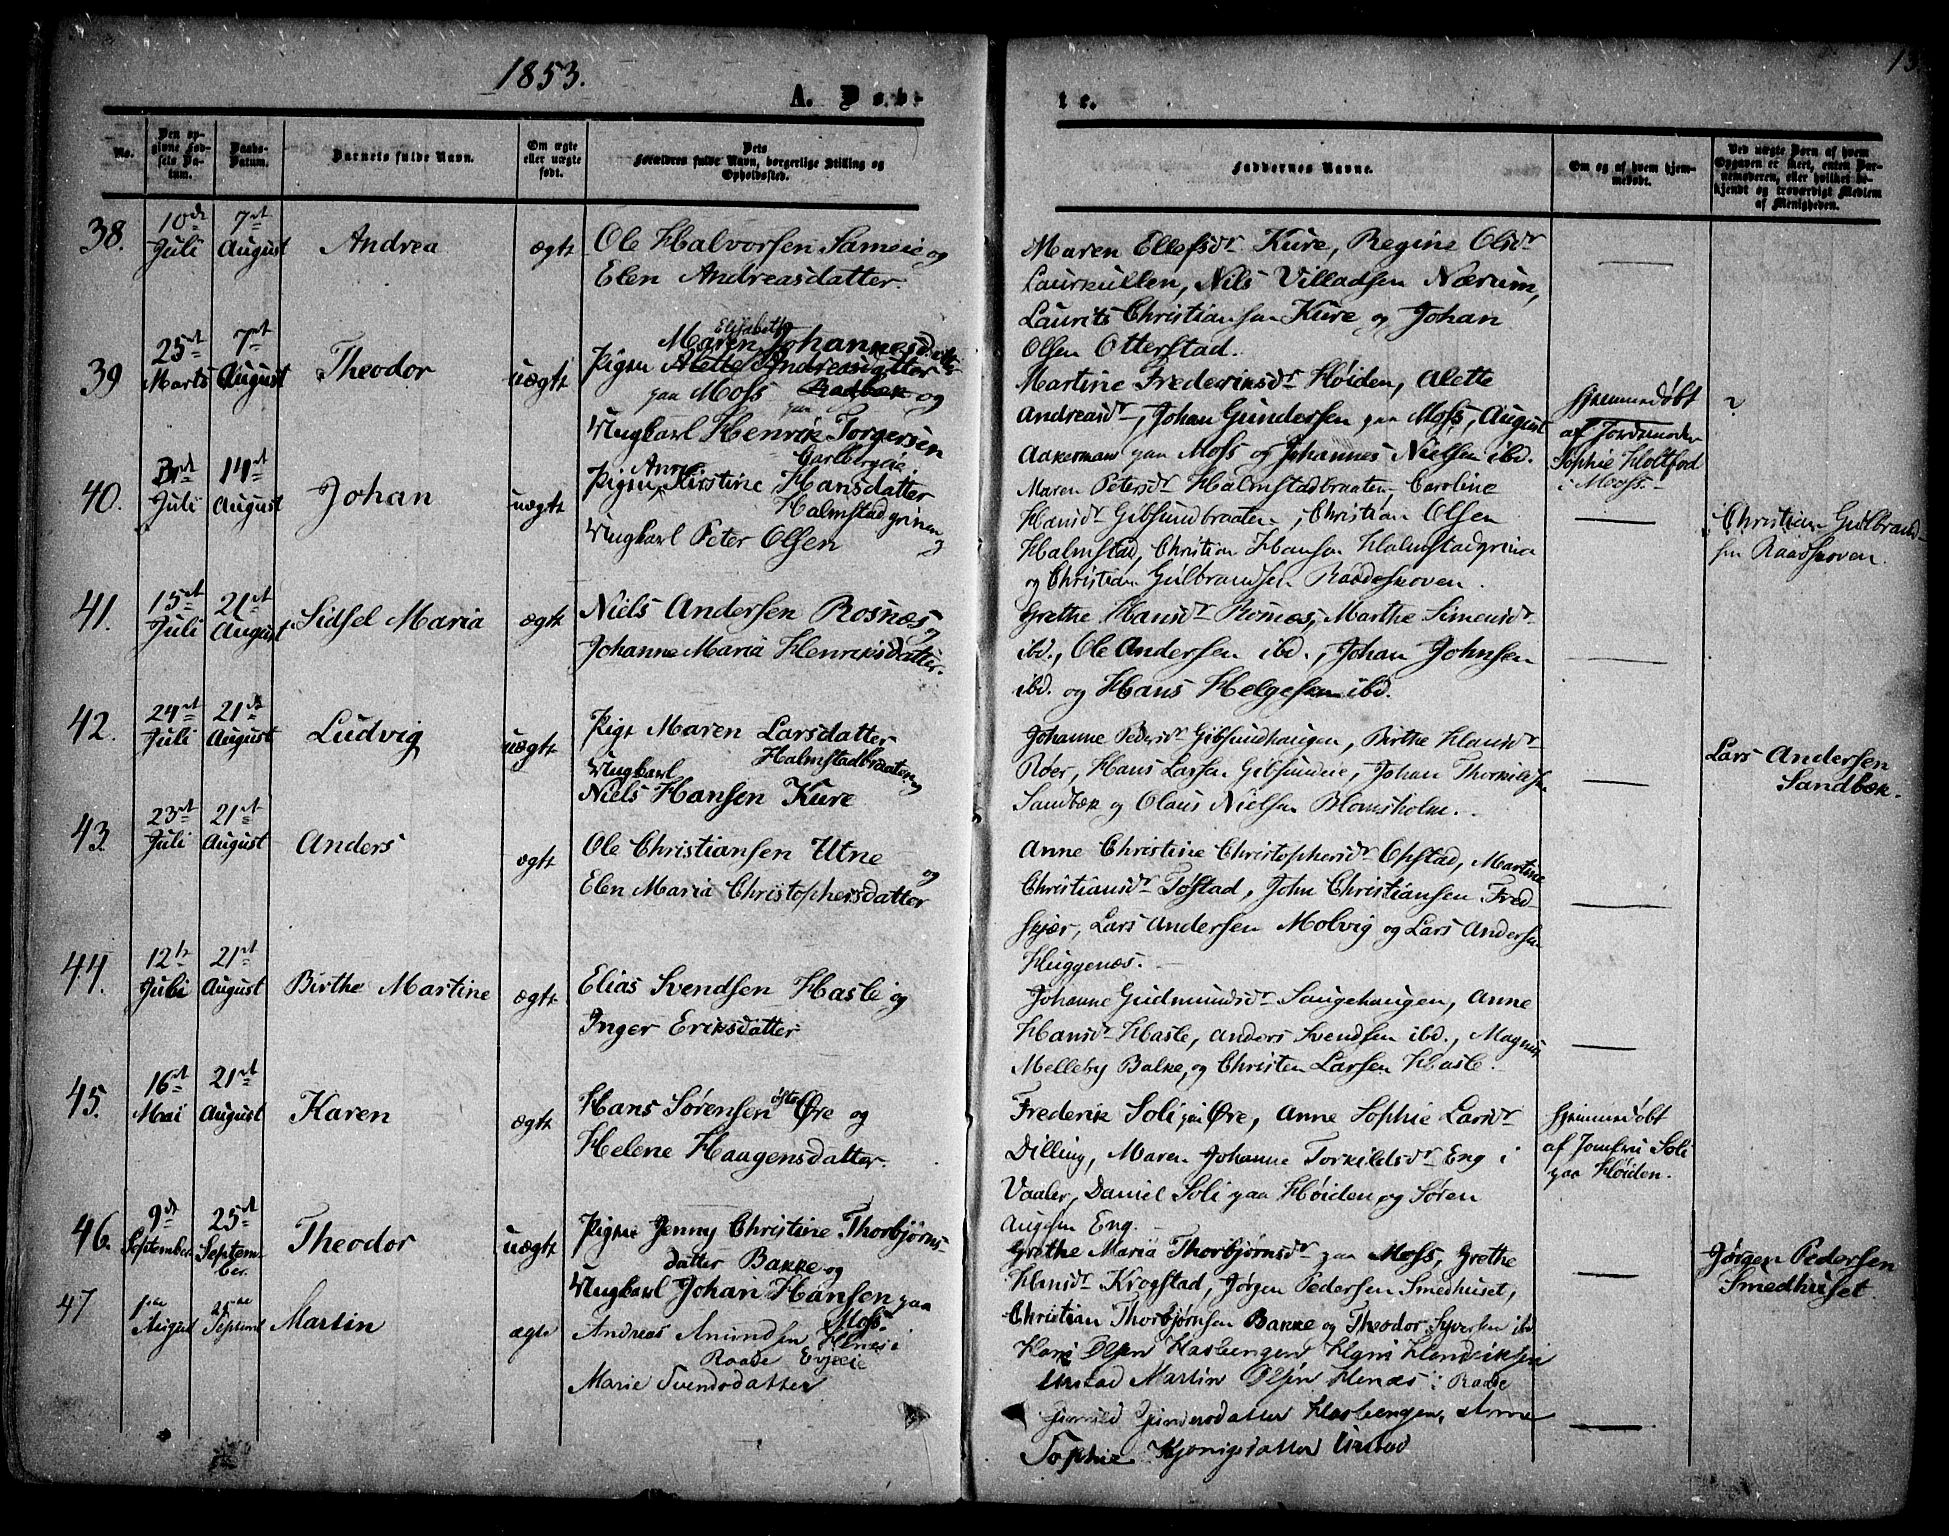 1853.
A. Døb-
te.
No.
Den op-
givne Fød-
sels Da-
tum.
Daabs-
Datum.
Barnets fulde Navn.
Om ægte
eller uægte
født.
Dets
Forældres fulde Navn, borgerlige Stilling og
Opholdssted.
Faddernes Navne.
Om og af hvem hjem-
medøbt.
Ved uægte Børn af hvem
Opgaven er skeet, enten Bar-
nemoderen, eller hvilket be-
kjendt og troværdigt Medlem
af Menigheden.
38. 10de Juli 7et August Andrea ægte
Ole Halvorsen Sameie og
Elen Andreasdatter.
Maren Ellefsdr Kure, Regine Olsdr
Laurkullen, Nils Villadsen Nærum,
Laurits Christiansen Kure og Johan
Olsen Otterstad.
39 25et Marts 7et August Theodor uægte
Elisabeth
Maren Johannesdatter
Pigen Alette Andreasdatter
paa Moss Radbæk og
Ungkarl Henrik Torgersen
Carlbergeie.
Martine Frederiksdr Høiden, Alette
Andreasdr, Johan Gundersen paa Moss, August
Aakermann paa Moss og Johannes Nielsen ibd.
Hjemmedøbt
af Jordemoder
Sophie Holtfod
i Moss.
?
40. 3de Juli 14et August Johan uægte
Anne
Pigen Kirstine Hansdatter
Halmstadgrinen
og
Ungkarl Peter Olsen
Maren Petersdr Halmstadbraaten, Caroline
Hansdr Gibsundbraaten, Christian Olsen
Halmstad, Christian Hansen Halmstadgrina
og Christian Gulbrandsen Raadeskoven.
Christian Gulbrand-
sen Raadskoven.
41. 15et Juli 21et August Sidsel Maria ægte
Niels Andersen Rosnæs
og
Johanne Maria Henriksdatter.
Grethe Hansdr Rosnæs, Marthe Simensdr
ibd., Ole Andersen ibd., Johan Johnsen
ibd. og Hans Helgesen ibd.
42. 24et Juli 21de August Ludvig uægte
Pige Maren Larsdatter
Halmstadbraaten
og
Ungkarl
Niels Hansen Kure
Johanne Pedersdr Gibsundhaugen, Birthe Hansdr
Røer, Hans Larsen Gibsundeie, Johan Thorkilds.
Sandbæk og Olaus Nielsen Blomsholm.
Lars Andersen
Sandbæk.
43. 23et Juli 21et August Anders ægte
Ole Christiansen Utne
og
Elen Maria Christophersdatter
Anne Christine Christophersdr Opstad, Martine
Christiansdr Tofstad, John Christiansen Fred-
skjær, Lars Andersen Molvig og Lars Andersen
Huggenæs.
44. 12te Juli 21et August Birthe Martine ægte
Elias Svendsen Hasle og
Inger Eriksdatter
Johanne Gudmundsdr Saugehaugen, Anne
Hansdr Hasle, Anders Svendsen ibd., Magnus
Melleby Balke, og Christen Larsen Hasle.
45. 16et Mai 21et August Karen ægte
Hans Sørensen Østre Øre og
Helene Haagensdatter.
Frederik Soli paa Øre, Anne Sophie Larsdr
Dilling, Maren Johanne Torkildsdr Eng i
Vaaler, Daniel Soli paa Høiden og Søren
Augesen Eng.
Hjemmedøbt
af Jomfru Soli
paa Høiden.
46. 9de September 25et Septem-
ber. Theodor uægte
Pigen Jenny Christine Thorbjørns-
datter Bakke og
Ungkarl Johan Hansen paa
Moss.
Grethe Maria Thorbjørnsdr paa Moss, Grethe
Hansdr Krogstad, Jørgen Pedersen Smedhuset,
Christian Thorbjørnsen Bakke og Theodor Syversen ibd
Jørgen Pedersen
Smedhuset.
47 1ste August 25de Septemb Martin ægte
Andreas Amundsen Henæs i
Raade Evjeeie
Marie Svendsdatter
Hans Olsen Haslengen Hendriksen
Unstad Martin Olsen Henæs i Raade
Gunild Gundersdatter Haslengen, Anne
Sophie Unstad